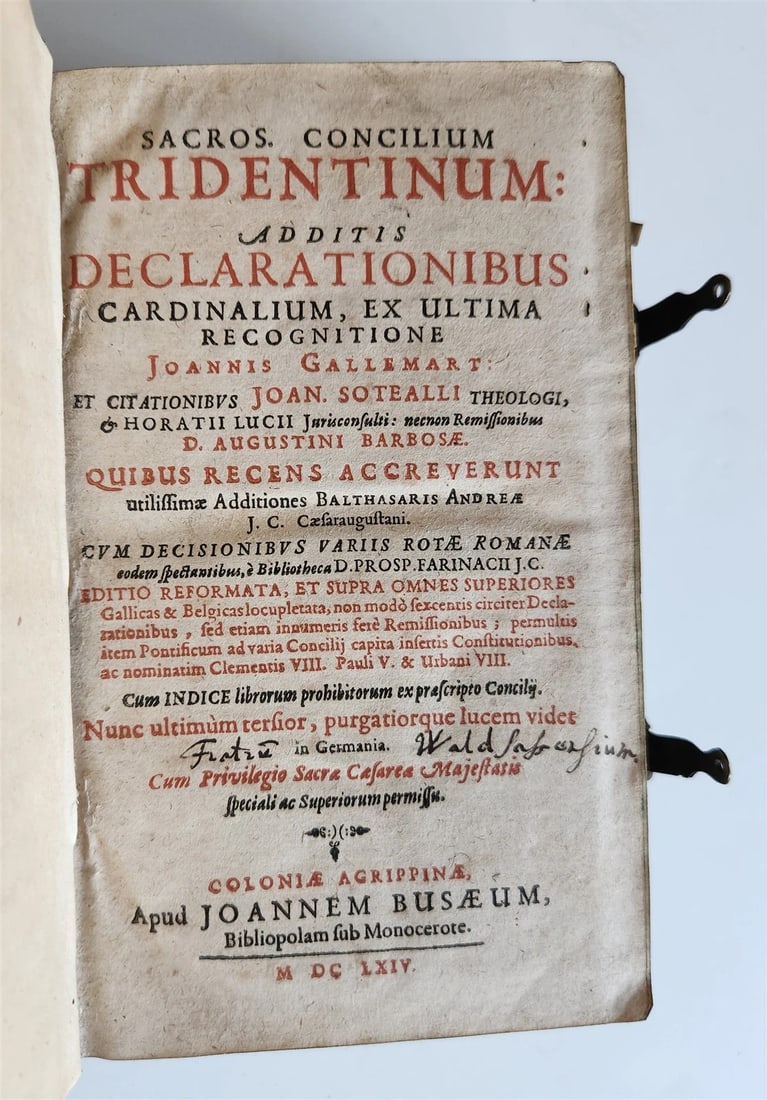 SACROS. CONCILIUM
TRIDENTINUM:
ADDITIS
DECLARATIONIBUS
CARDINALIUM, EX ULTIMA
RECOGNITIONE
JOANNIS GALLEMART:
ET CITATIONIBVS JOAN. SOTEALLI THEOLOGI,
& HORATII LUCII Jurisconſulti: necnon Remiſſionibus
D. AUGUSTINI BARBOSÆ.
QUIBUS RECENS ACCREVERUNT
utiliſſimæ Additiones BALTHASARIS ANDREÆ
J. C. Cæſarauguſtani.
CVM DECISIONIBVS VARIIS ROTÆ ROMANÆ
eodem ſpectantibus, è Bibliotheca D. PROSP. FARINACII J. C.
EDITIO REFORMATA, ET SUPRA OMNES SUPERIORES
Gallicas & Belgicas locupletata, non modò ſexcentis circiter Decla-
rationibus, ſed etiam innumeris ferè Remiſſionibus; permultis
item Pontificum ad varia Concilij capita inſertis Conſtitutionibus,
ac nominatim Clementis VIII. Pauli V. & Urbani VIII.
Cum INDICE librorum prohibitorum ex præſcripto Concilij.
Nunc ultimùm terſior, purgatiorque lucem videt
in Germania.
Cum Privilegio Sacræ Cæſareæ Majeſtatis
ſpeciali ac Superiorum permiſſu.
COLONIÆ AGRIPPINÆ,
Apud JOANNEM BUSÆUM,
Bibliopolam ſub Monocerote.
M DC LXIV.